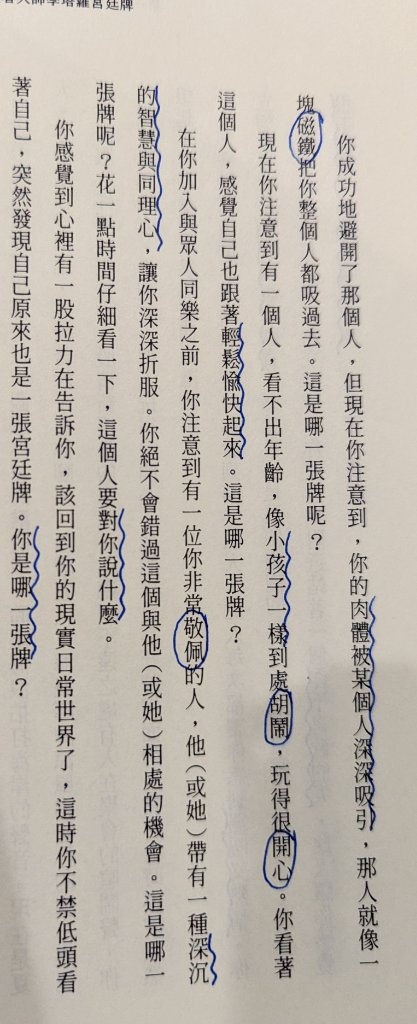 師學塔羅宮廷牌
你成功地避開了那個人，但現在你注意到，你的肉體被某個人深深吸引，那人就像一
塊磁鐵把你整個人都吸過去。這是哪一張牌呢？
現在你注意到有一個人，看不出年齡，像小孩子一樣到處胡鬧，玩得很開心。你看著
這個人，感覺自己也跟著輕鬆愉快起來。這是哪一張牌？
在你加入與眾人同樂之前，你注意到有一位你非常敬佩的人，他（或她）帶有一種深沉
的智慧與同理心，讓你深深折服。你絕不會錯過這個與他（或她）相處的機會。這是哪一
張牌呢？花一點時間仔細看一下，這個人要對你說什麼。
你感覺到心裡有一股拉力在告訴你，該回到你的現實日常世界了，這時你不禁低頭看
著自己，突然發現自己原來也是一張宮廷牌。你是哪一張牌？